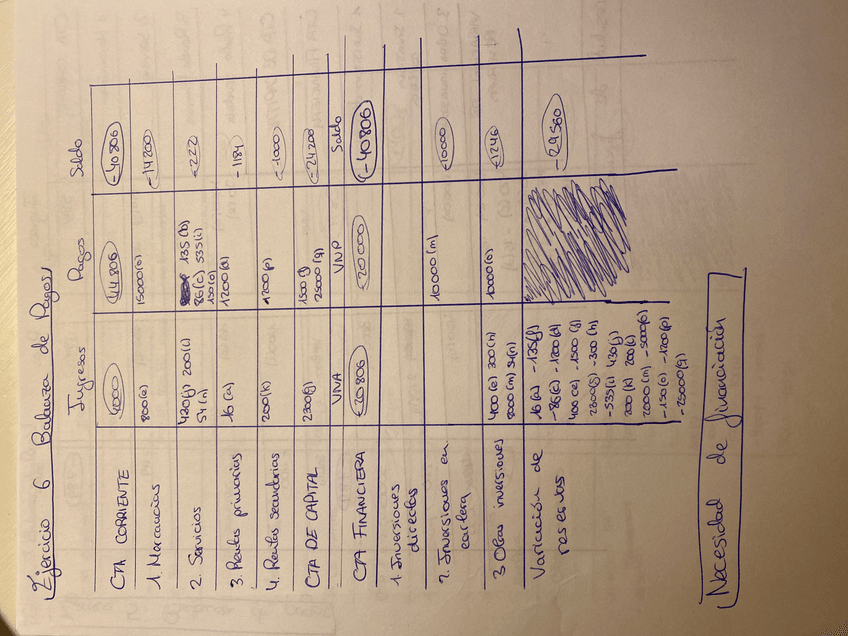 Ejercicio 6 Balanza de Pagos
Ingresos Pagos Saldo
CTA CORRIENTE 4000 44.806 -40806
1. Mercancías 800(e) 15000(o) -14200
2. Servicios 430(j) 200(l) 135(b) +222
54(n) 86(c) 535(i)
150(o)
3. Rentas primarias 16(a) 1200(d) -1184
4. Rentas secundarias 200(k) 1200(p) -1000
CTA DE CAPITAL 2300(g) 1500(f) -24200
25000(q)
CTA FINANCIERA VNA VNP Saldo
-20806 20000 -40806
1. Inversiones
directas
2. Inversiones en 10000(m) -10000
cartera
3 Otras inversiones 400(e) 300(h) 10000(o) -1246
8000(m) 54(n)
Variación de 16(a) -135(b) -29560
reservas -86(c) -1200(d)
400(e) -1500(f)
2300(g) -300(h)
-535(i) 430(j)
200(k) 200(l)
2000(m) -5000(o)
-150(o) -1200(p)
-25000(q)
Necesidad de financiación